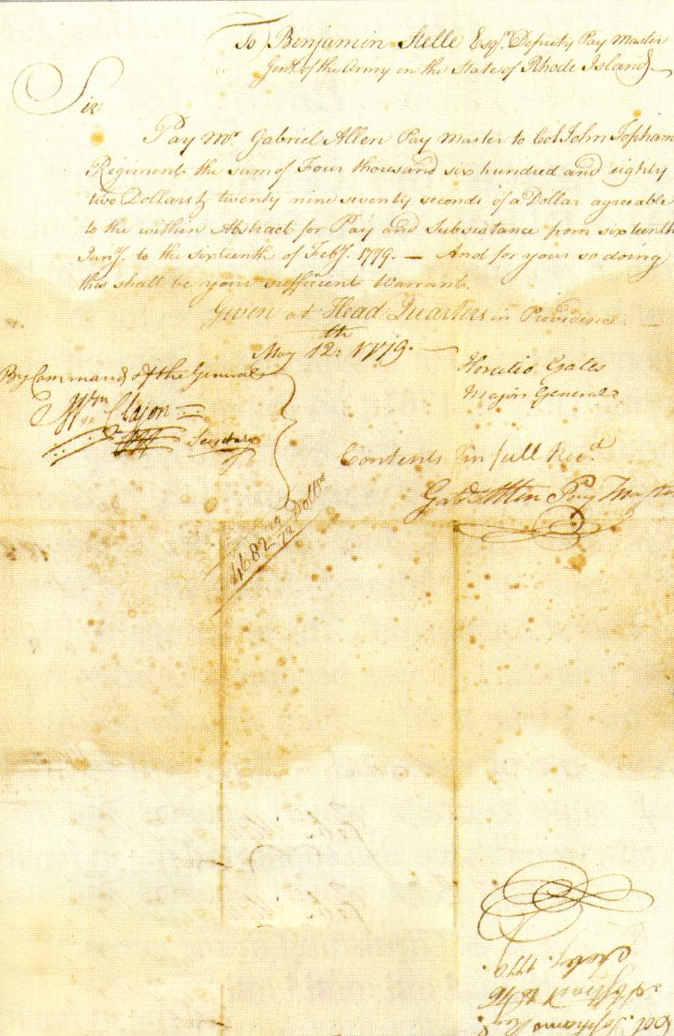 To Benjamin Stelle Esqr. Deputy Pay Master
Genl. of the Army in the State of Rhode Island
Sir
Pay Mr. Gabriel Allen Pay Master to Col John Topham
Regiment the sum of Four thousand six hundred and eighty
two Dollars & twenty nine seventy seconds of a Dollar agreable
to the within Abstract for Pay and Subsistance from sixteenth
Jany. to the sixteenth of Feby. 1779. — And for your so doing
this shall be your sufficient Warrant.
Given at Head Quarters in Providence
May 12th 1779.
Horatio Gates
Major General
By Command of the General
Wm Clajon
Secretary
Contents in full Recd
Gabl Allen Pay Master
4682 29/72 Dollrs
Col. Tophams Regt
Abstract to 16
Feby. 1779.